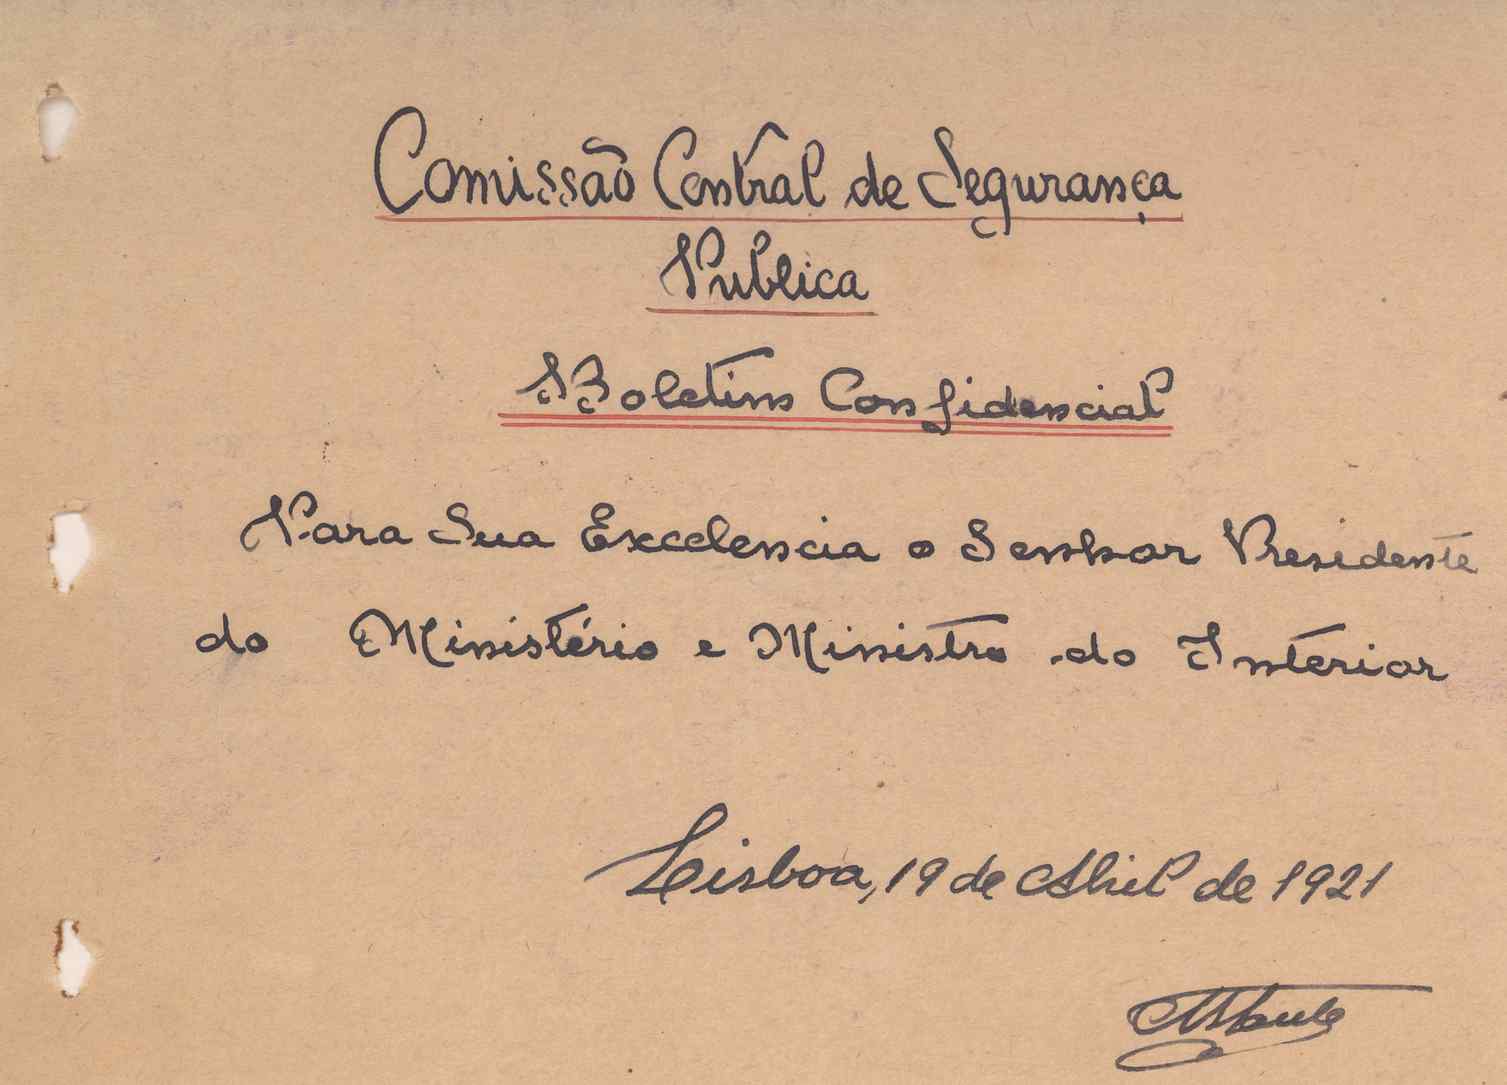 Comissão Central de Segurança
Publica
Boletim Confidencial
Para Sua Excelencia o Senhor Presidente
do Ministério e Ministro do Interior
Lisboa, 19 de Abril de 1921